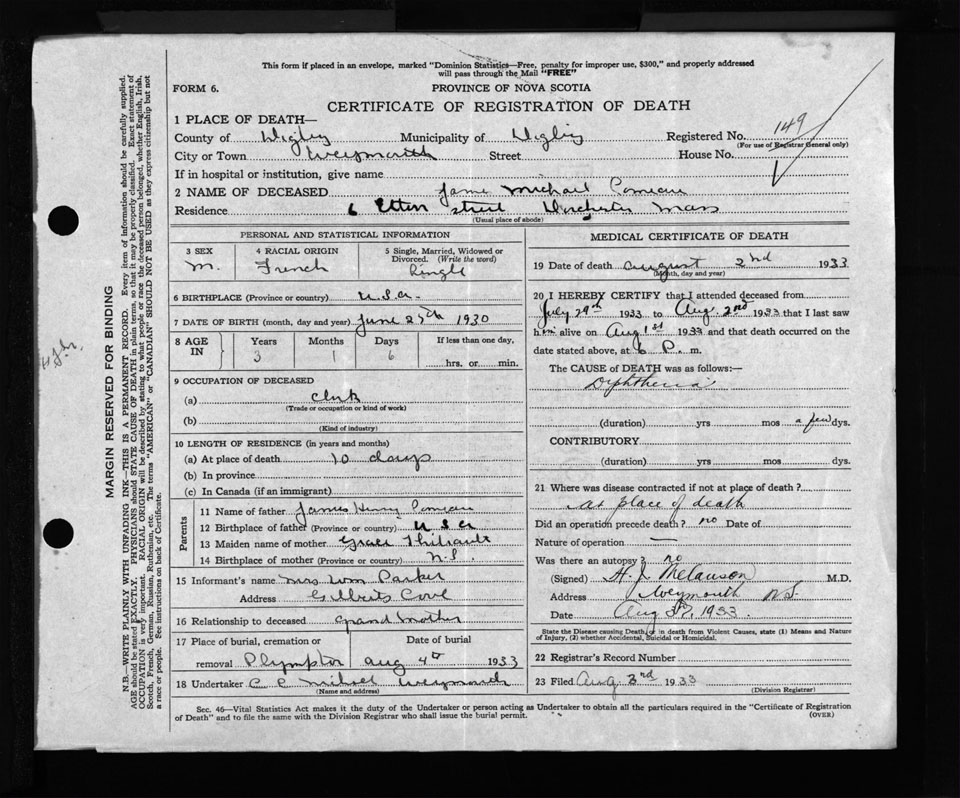 This form if placed in an envelope, marked "Dominion Statistics—Free, penalty for improper use, $300," and properly addressed
will pass through the Mail "FREE"
FORM 6.
PROVINCE OF NOVA SCOTIA
CERTIFICATE OF REGISTRATION OF DEATH
1 PLACE OF DEATH—
County of Digby Municipality of Digby Registered No. 149
(For use of Registrar General only)
City or Town Weymouth Street House No.
If in hospital or institution, give name
2 NAME OF DECEASED Michael Comeau
Residence 6 street Dorchester Mass
(Usual place of abode)
PERSONAL AND STATISTICAL INFORMATION
3 SEX M.
4 RACIAL ORIGIN French
5 Single, Married, Widowed or Divorced. (Write the word) Single
6 BIRTHPLACE (Province or country) U.S.A.
7 DATE OF BIRTH (month, day and year) June 25th 1930
8 AGE IN Years 3 Months 1 Days 6 If less than one day, hrs. or min.
9 OCCUPATION OF DECEASED
(a)
(Trade or occupation or kind of work)
(b)
(Kind of industry)
10 LENGTH OF RESIDENCE (in years and months)
(a) At place of death 10 days
(b) In province
(c) In Canada (if an immigrant)
Parents
11 Name of father James Henry Comeau
12 Birthplace of father (Province or country) U S A
13 Maiden name of mother Grace Thibault
14 Birthplace of mother (Province or country) N.S.
15 Informant's name Mrs Wm Parker
Address Gilberts Cove
16 Relationship to deceased grand mother
17 Place of burial, cremation or removal Plympton Date of burial Aug 4th 1933
18 Undertaker Weymouth
(Name and address)
MEDICAL CERTIFICATE OF DEATH
19 Date of death August 2nd 1933
(Month, day and year)
20 I HEREBY CERTIFY that I attended deceased from
July 29th 1933 to Aug. 2nd 1933 that I last saw
him alive on Aug 1st 1933 and that death occurred on
date stated above, at 6 P. m.
The CAUSE of DEATH was as follows:—
Diphtheria
(duration) yrs mos a few dys.
CONTRIBUTORY
(duration) yrs mos dys.
21 Where was disease contracted if not at place of death?
at place of death
Did an operation precede death? no Date of
Nature of operation —
Was there an autopsy? no
(Signed) H. J. Melanson M.D.
Address Weymouth N.S.
Date Aug 1933
State the Disease causing Death, or in death from Violent Causes, state (1) Means and Nature
of Injury, (2) whether Accidental, Suicidal or Homicidal.
22 Registrar's Record Number
23 Filed Aug 3rd 1933
(Division Registrar)
Sec. 46—Vital Statistics Act makes it the duty of the Undertaker or person acting as Undertaker to obtain all the particulars required in the "Certificate of Registration
of Death" and to file the same with the Division Registrar who shall issue the burial permit. (OVER)
MARGIN RESERVED FOR BINDING
N.B.—WRITE PLAINLY WITH UNFADING INK—THIS IS A PERMANENT RECORD. Every item of information should be carefully supplied.
AGE should be stated EXACTLY. PHYSICIANS should STATE CAUSE OF DEATH in plain terms, so that it may be properly classified. Exact statement of
OCCUPATION is very important. RACIAL ORIGIN will be described by stating to what people or race the deceased person belonged, whether English, Irish,
Scotch, French, German, Russian, Ruthenian, etc. The terms "AMERICAN" or "CANADIAN" SHOULD NOT BE USED as they express citizenship but not
a race or people. See instructions on back of Certificate.